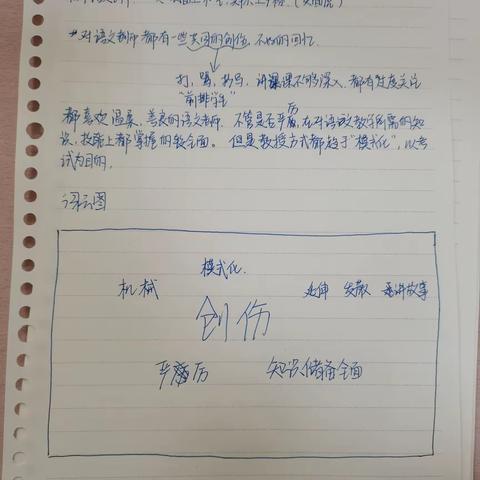 *对语文老师都有一些共同的创伤,不好的回忆.
打,骂,抄写,讲课课不够深入.都有过度关注
"前排学生"
都喜欢温柔、善良的语文老师.不管是否严厉,在对语文教学所需的知
识,技能上都掌握的较全面。但是教授方式都趋于"模式化",以考
试为目的.
词云图
模式化.
机械
延伸 发散 爱讲故事
创伤
严厉
知识储备全面